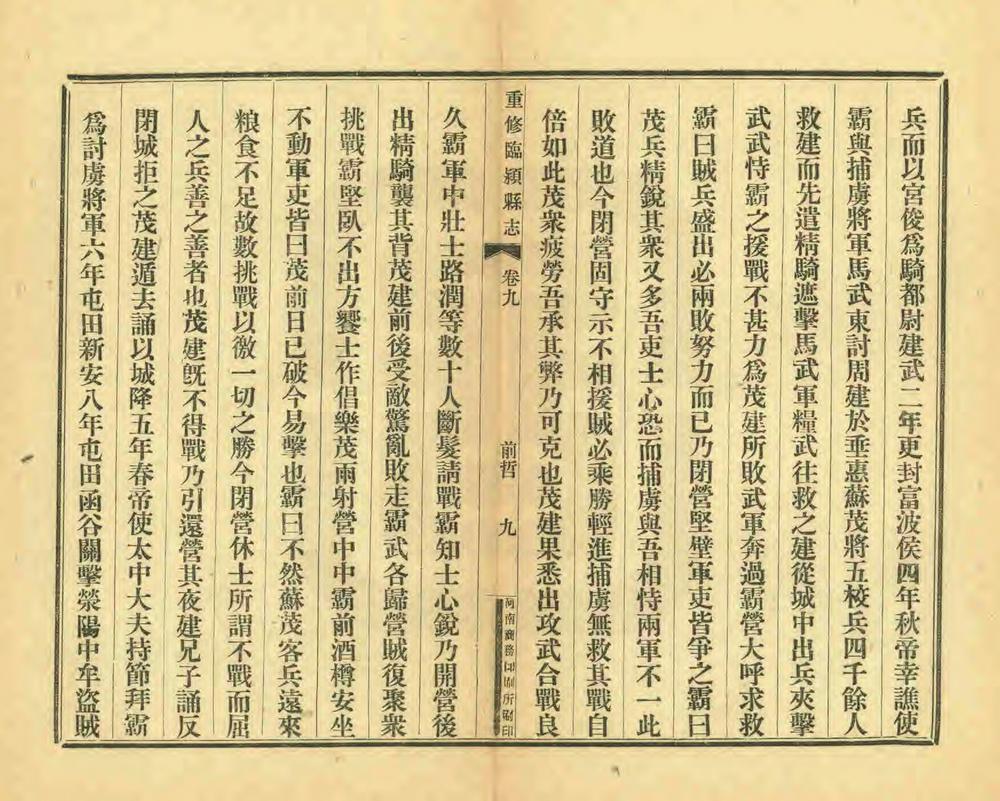 兵而以宮俊爲騎都尉建武二年更封富波侯四年秋帝幸譙使
霸與捕虜將軍馬武東討周建於垂惠蘇茂將五校兵四千餘人
救建而先遣精騎遮擊馬武軍糧武往救之建從城中出兵夾擊
武武恃霸之援戰不甚力爲茂建所敗武軍奔過霸營大呼求救
霸曰賊兵盛出必兩敗努力而已乃閉營堅壁軍吏皆爭之霸曰
茂兵精銳其衆又多吾吏士心恐而捕虜與吾相恃兩軍不一此
敗道也今閉營固守示不相援賊必乘勝輕進捕虜無救其戰自
倍如此茂衆疲勞吾承其弊乃可克也茂建果悉出攻武合戰良
重修臨潁縣志
卷九
前哲
九
河南商務印刷所刷印
久霸軍中壯士路潤等數十人斷髮請戰霸知士心銳乃開營後
出精騎襲其背茂建前後受敵驚亂敗走霸武各歸營賊復聚衆
挑戰霸堅臥不出方饗士作倡樂茂雨射營中中霸前酒樽安坐
不動軍吏皆曰茂前日已破今易擊也霸曰不然蘇茂客兵遠來
粮食不足故數挑戰以徼一切之勝今閉營休士所謂不戰而屈
人之兵善之善者也茂建旣不得戰乃引還營其夜建兄子誦反
閉城拒之茂建遁去誦以城降五年春帝使太中大夫持節拜霸
爲討虜將軍六年屯田新安八年屯田函谷關擊滎陽中牟盜賊